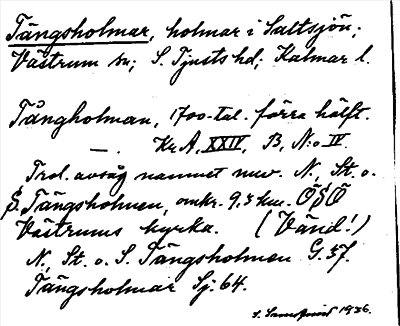 Tångsholmar, holmar i Saltsjön;
Västrum sn; S. Tjusts hd; Kalmar l.
Tångholman, 1700-tal. förra hälft.
—. Kr.A, XXIV, B, N:o IV.
Trol. avsåg namnet nuv. N., St. o.
S. Tångsholmen, omkr. 9,5 km. ÖSÖ
Västrums kyrka. (Vänd!)
N, St. o. S. Tångsholmen G. 37.
Tångsholmar Sj. 64.
1936.